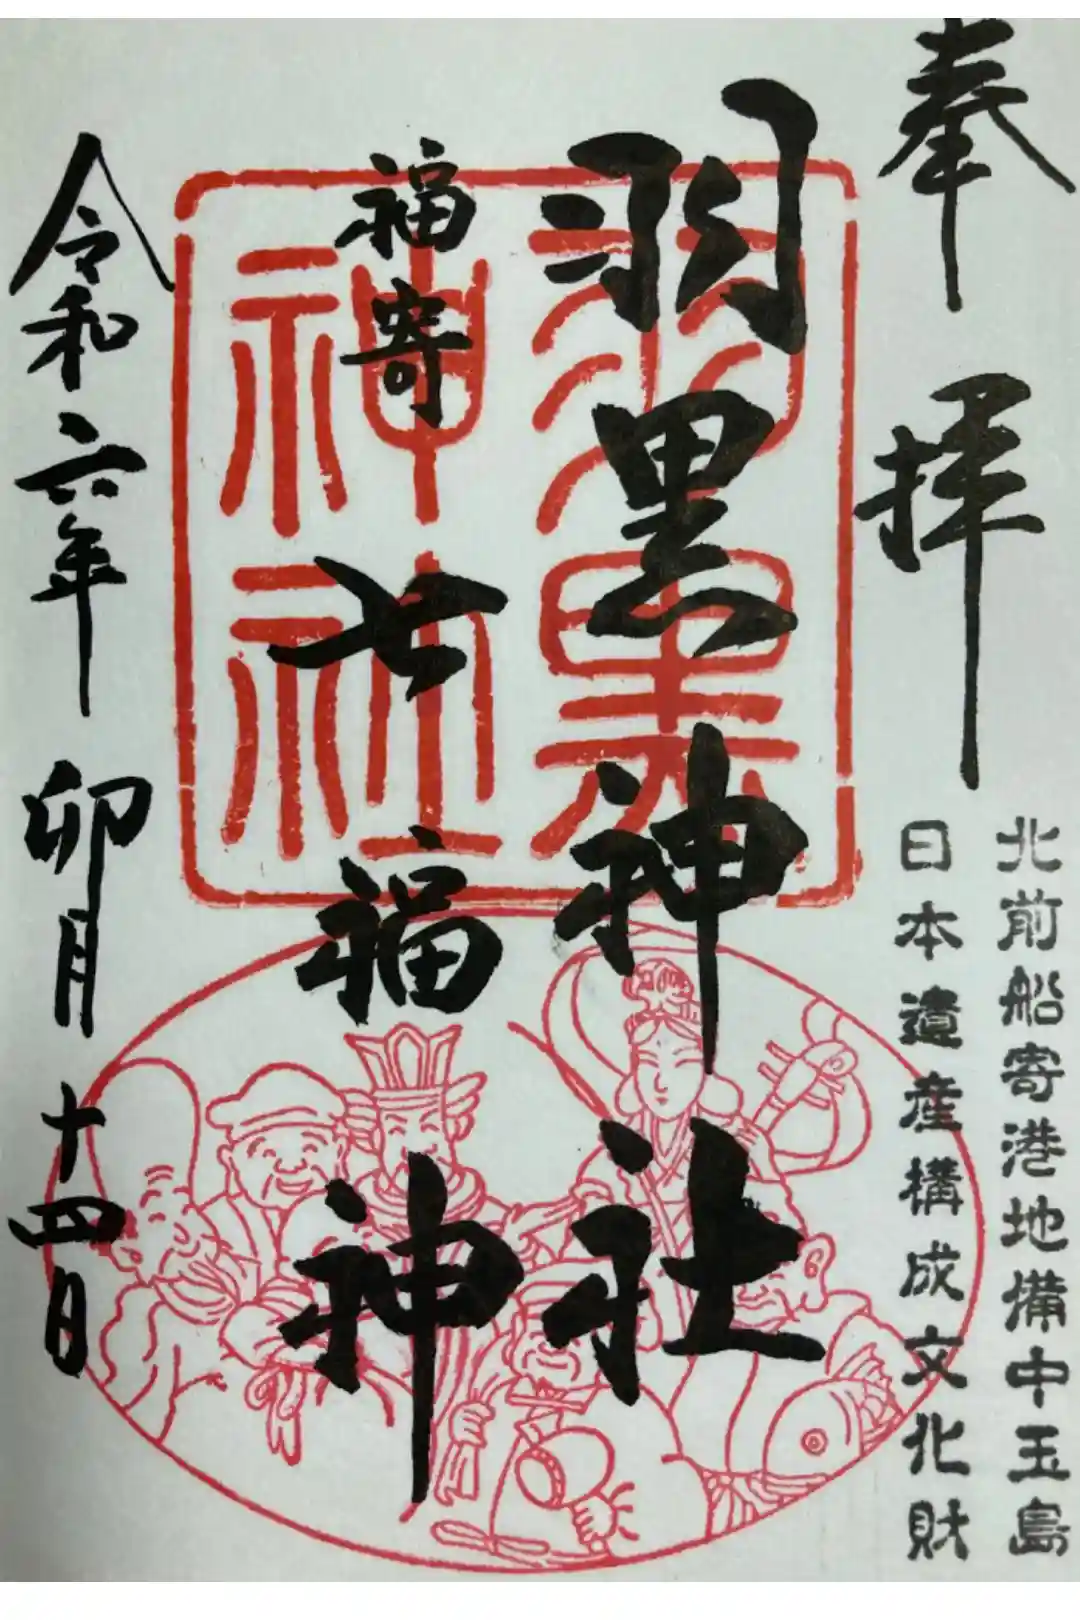 奉拝
北前船寄港地備中玉島
日本遺産構成文化財
羽黒神社
羽黒
神社
福寄
七福神
令和六年 卯月 十四日